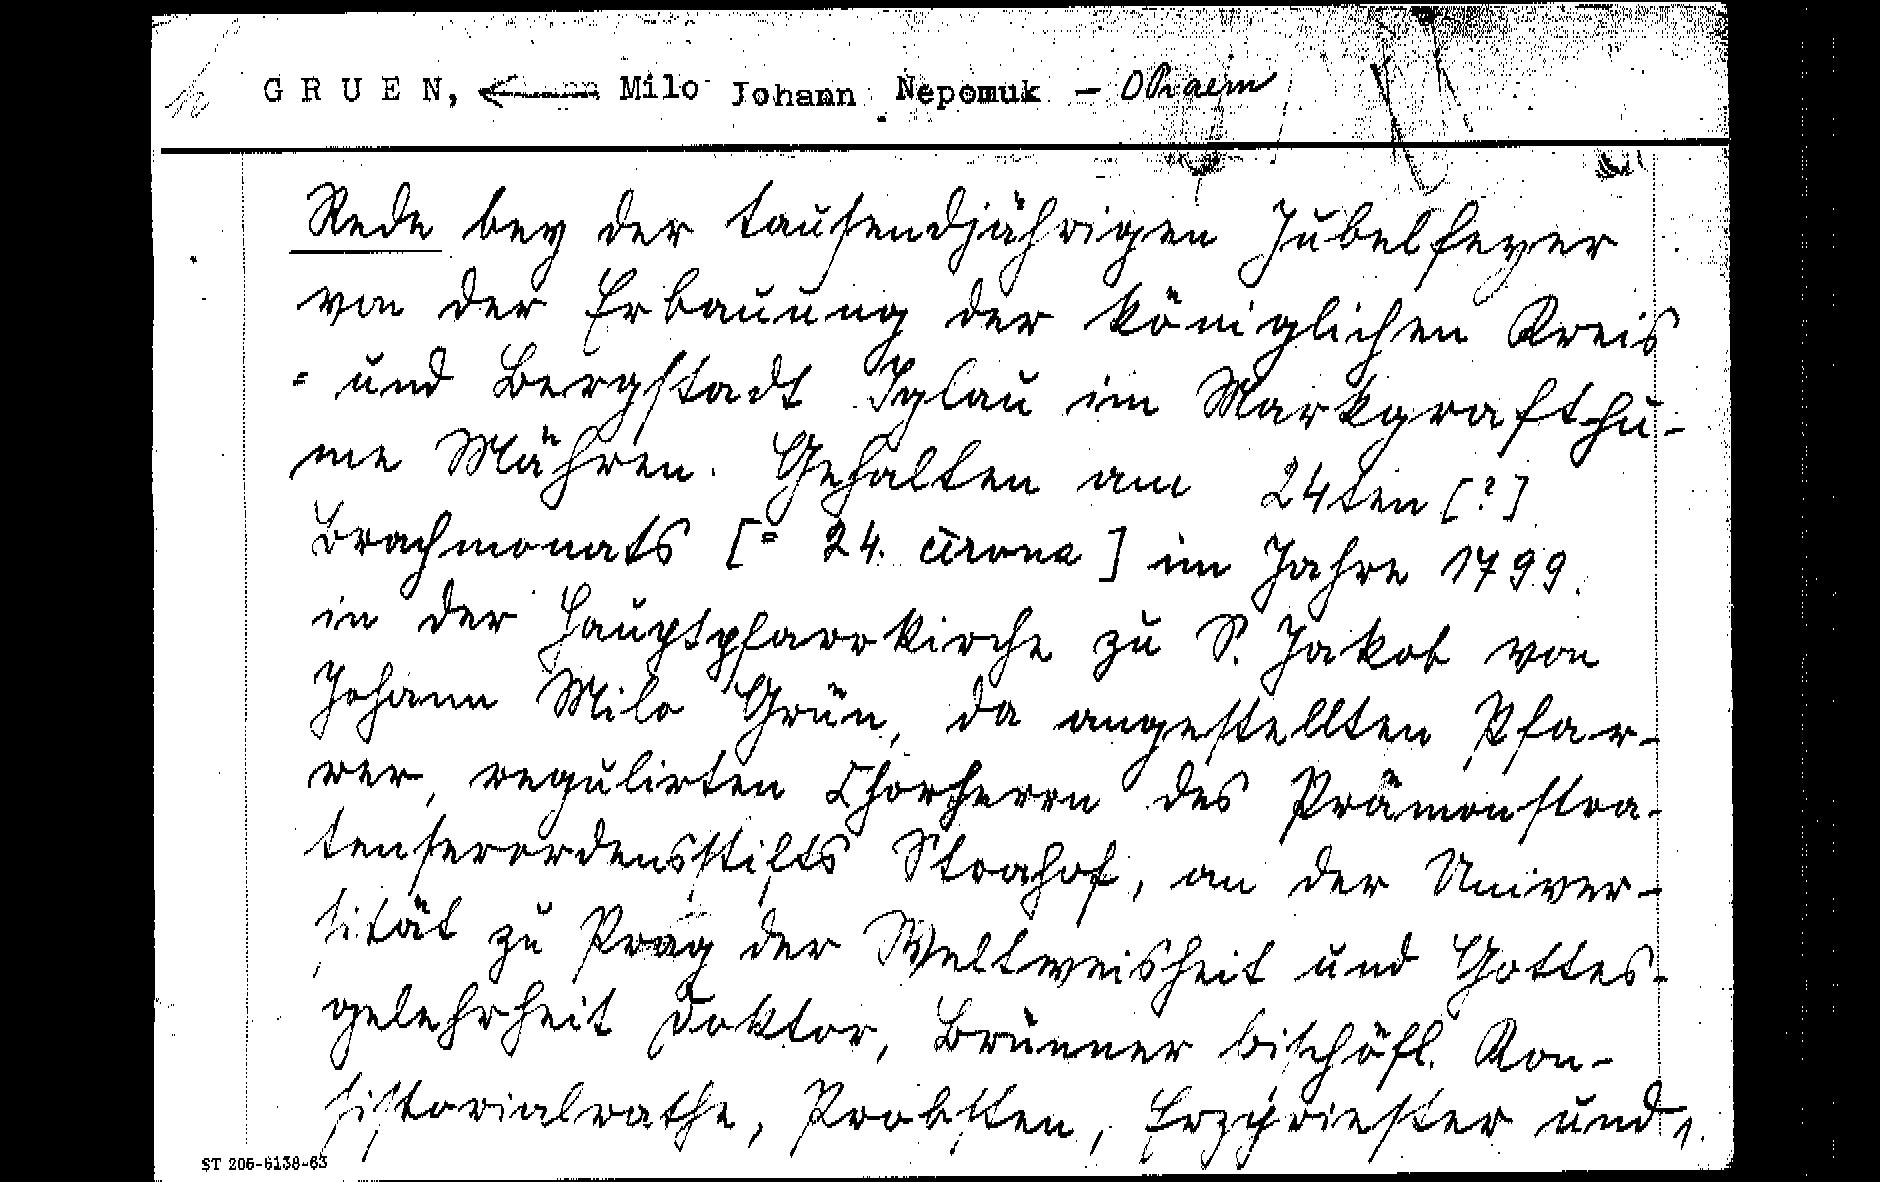 GRUEN, Milo Johann Nepomuk - OPraem
Rede bey der tausendjährigen Jubelfeyer
von der Erbauung der königlichen Kreis
= und Bergstadt Iglau im Markgrafthu-
me Mähren. Gehalten am 24ten [?]
Brachmonats [= 24. června] im Jahre 1799.
in der Hauptpfarrkirche zu S. Jakob von
Johann Milo Grün, da angestellten Pfar-
rer, regulirten Chorherrn des Prämonstra-
tenserordensstifts Strahof, an der Univer-
sität zu Prag der Weltweisheit und Gottes-
gelehrheit Doktor, Brünner bischöfl. Kon-
sistorialrathe, Probsten, Erzpriester und
1.
ST 206-6138-63